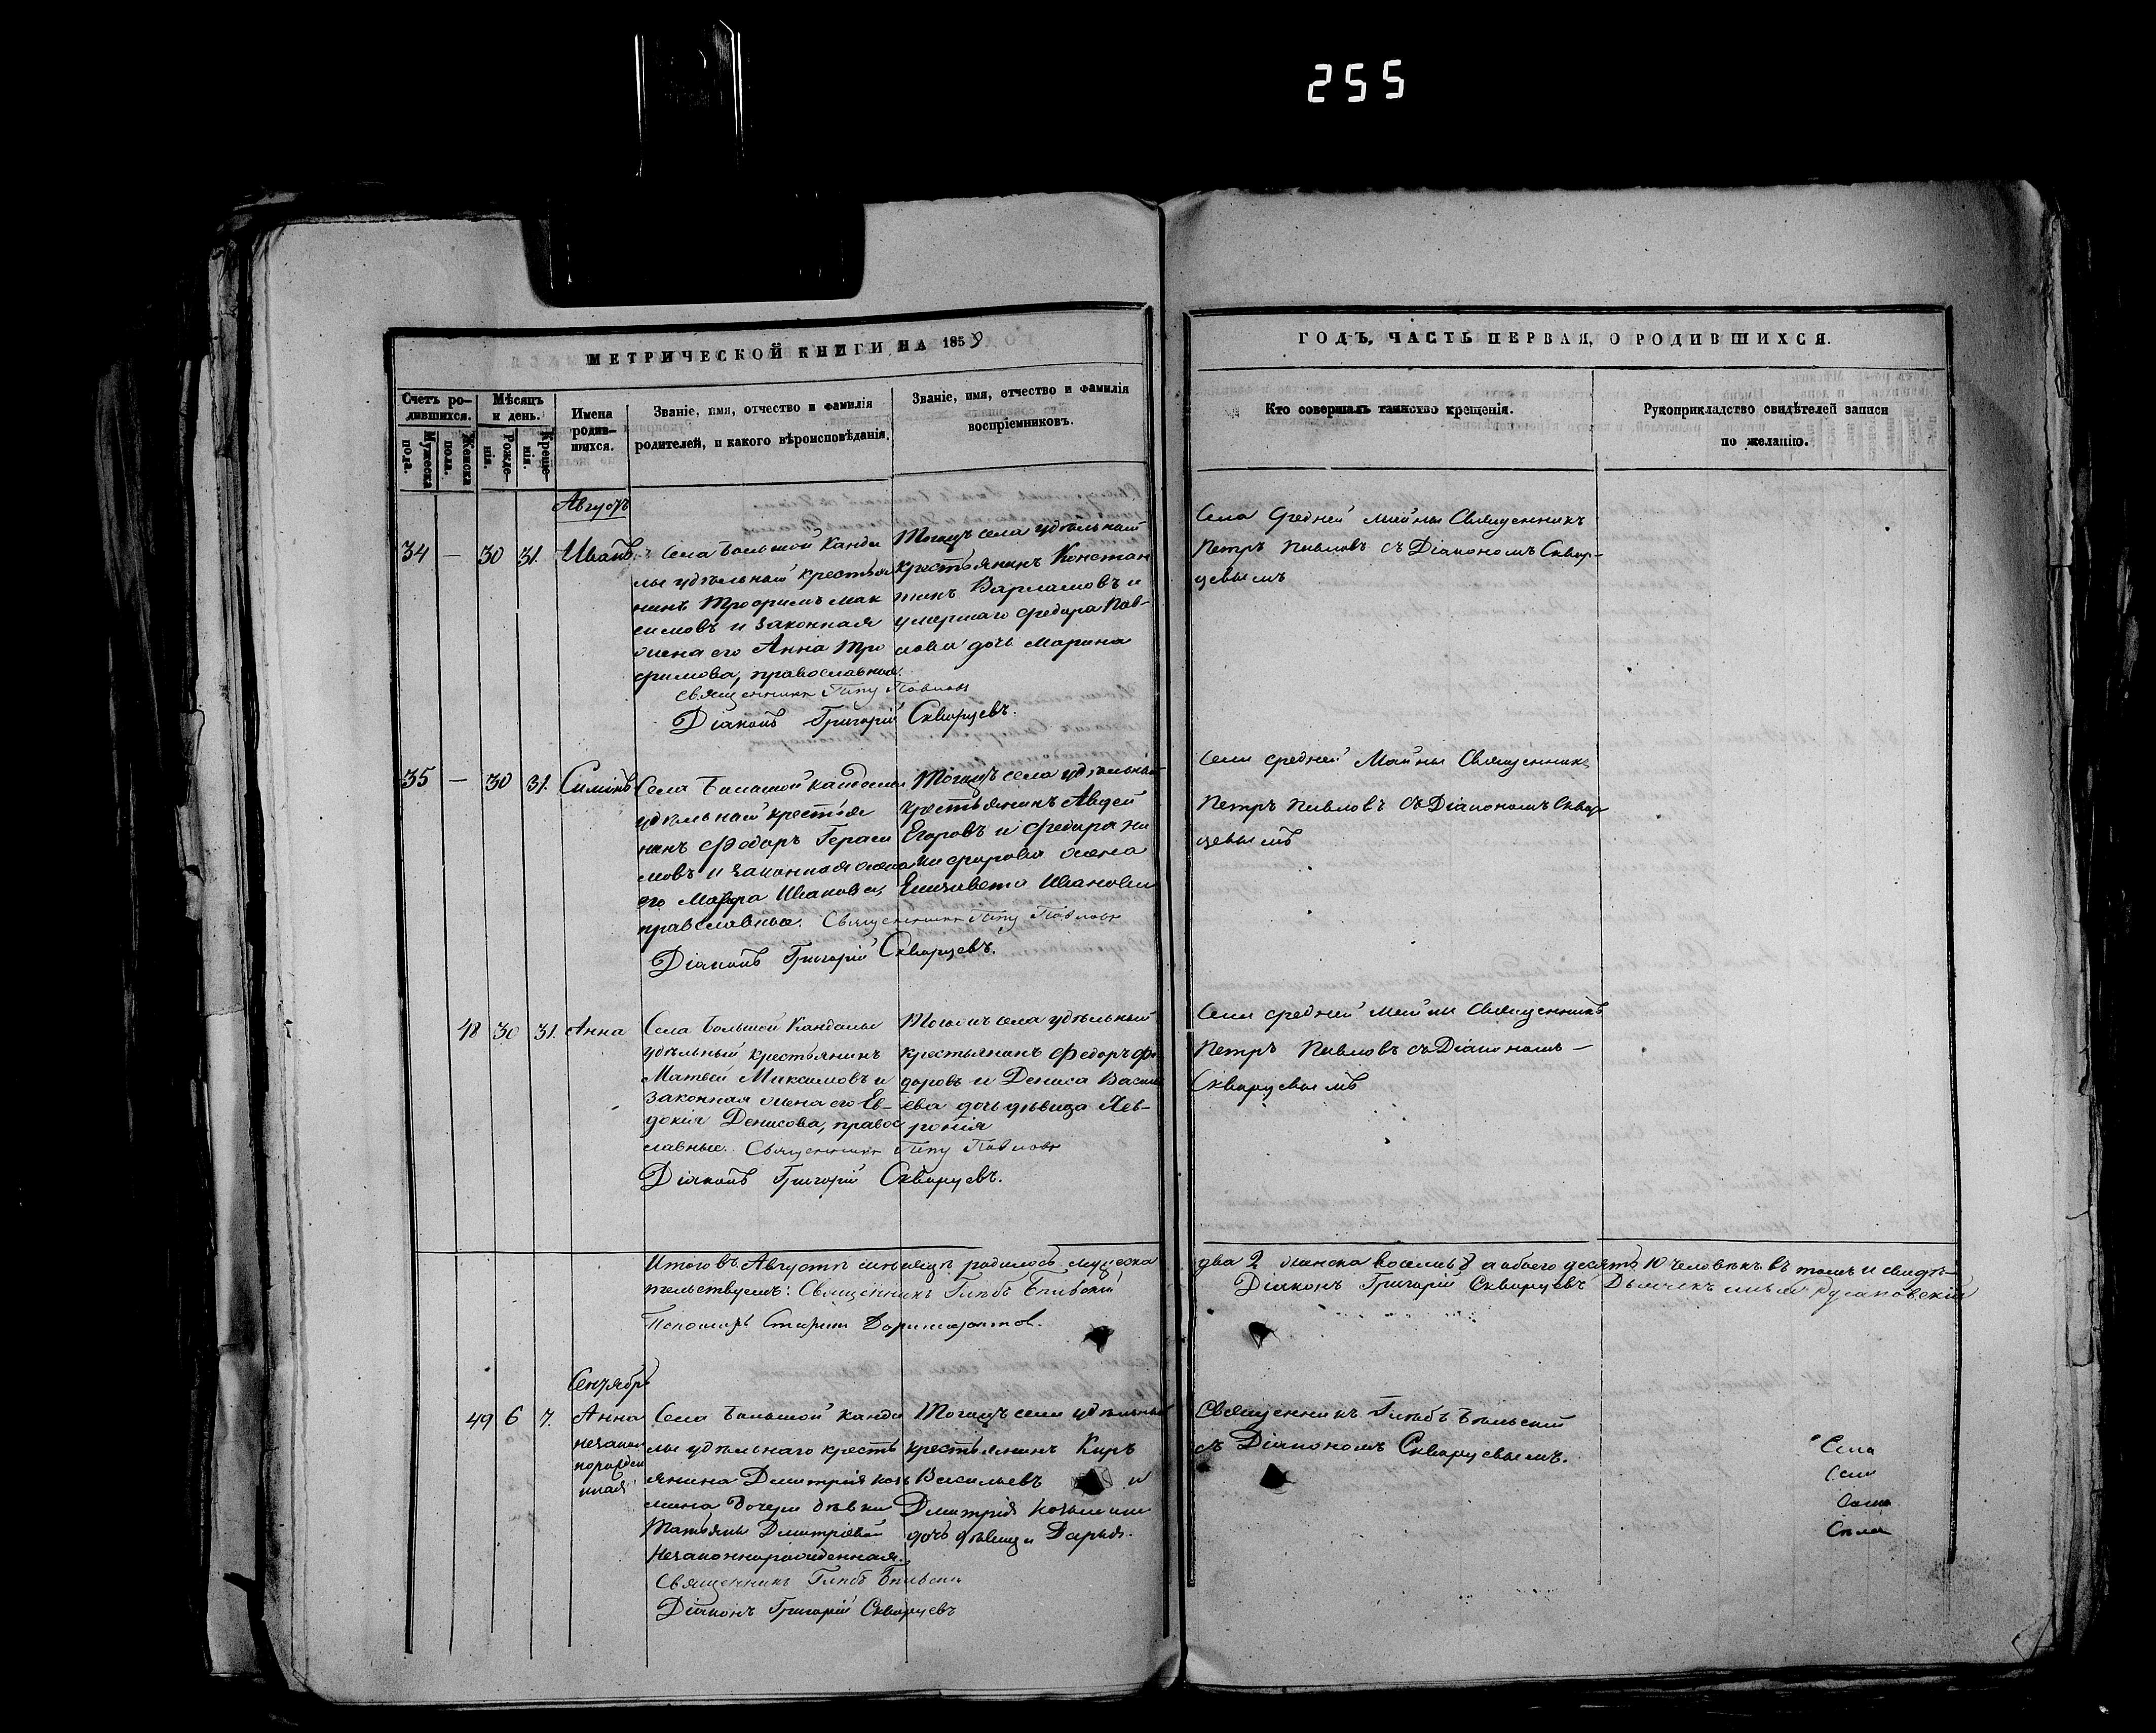 255
МЕТРИЧЕСКОЙ КНИГИ НА 1859
ГОДЪ, ЧАСТЬ ПЕРВАЯ, О РОДИВШИХСЯ.
Счетъ ро-
дившихся.
Мужеска
пола.
Женска
пола.
Мѣсяцъ
и день.
Рожде-
нія.
Креще-
нія.
Имена
родив-
шихся.
Званіе, имя, отчество и фамилія
родителей, и какого вѣроисповѣданія.
Званіе, имя, отчество и фамилія
воспріемниковъ.
Кто совершалъ таинство крещенія.
Рукоприкладство свидѣтелей записи
по желанію.
Августъ
34 — 30 31. Иванъ
Села Большой Канда
лы удѣльный крестья
нинъ Трофимъ Мак
симовъ и законная
жена его Анна Тро
фимова, православные.
Священникъ Петръ Павловъ
Діаконъ Григорій Скворцевъ.
Тогожъ села удѣльный
крестьянинъ Констан
тинъ Варламовъ и
умершаго Федора Пав-
лова дочь Марина
Села Средней Майны Священникъ
Петръ Павловъ съ Діакономъ Сквор-
цевымъ
35 — 30 31. Симіонъ
Села Большой Кандалы
удѣльный крестья
нинъ Федоръ Гераси
мовъ и законная жена
его Марфа Иванова,
православные. Священникъ Петръ Павловъ
Діаконъ Григорій Скворцевъ.
Тогожъ села удѣльный
крестьянинъ Авдей
Егоровъ и Федора Ни
кифорова жена
Елизавета Иванова
Села Средней Майны Священникъ
Петръ Павловъ съ Діакономъ Сквор
цевымъ
48 30 31. Анна
Села Большой Кандалы
удѣльный крестьянинъ
Матвей Максимовъ и
законная жена его Ев-
докія Денисова, правос
лавные. Священникъ Петръ Павловъ
Діаконъ Григорій Скворцевъ.
Тогожъ села удѣльный
крестьянинъ Федоръ Фе
доровъ и Дениса Василь
ева дочь дѣвица Хев-
ронія
Села Средней Майны Священникъ
Петръ Павловъ съ Діакономъ —
Скворцевымъ
Итого въ Августѣ мѣсяцѣ родилось мужеска
два 2 женска восемь 8 а обоего десять 10 человѣкъ въ томъ и свидѣ-
тельствуемъ: Священникъ Глѣбъ Бѣльскій
Діаконъ Григорій Скворцевъ Дьячекъ
Пономарь
Сентябрь
49 6 7. Анна
незакон
норожден
ная
Села Большой Канда
лы удѣльнаго кресть
янина Дмитрія Козь
мина дочери дѣвки
Татьяны Дмитріевой
незаконнорожденная.
Священникъ Глѣбъ Бѣльскій
Діаконъ Григорій Скворцевъ
Тогожъ села удѣльный
крестьянинъ Киръ
Васильевъ и
Дмитрія Козьмина
дочь дѣвица Дарья.
Священникъ Глѣбъ Бѣльскій
съ Діакономъ Скворцевымъ.
Села
Села
Села
Села